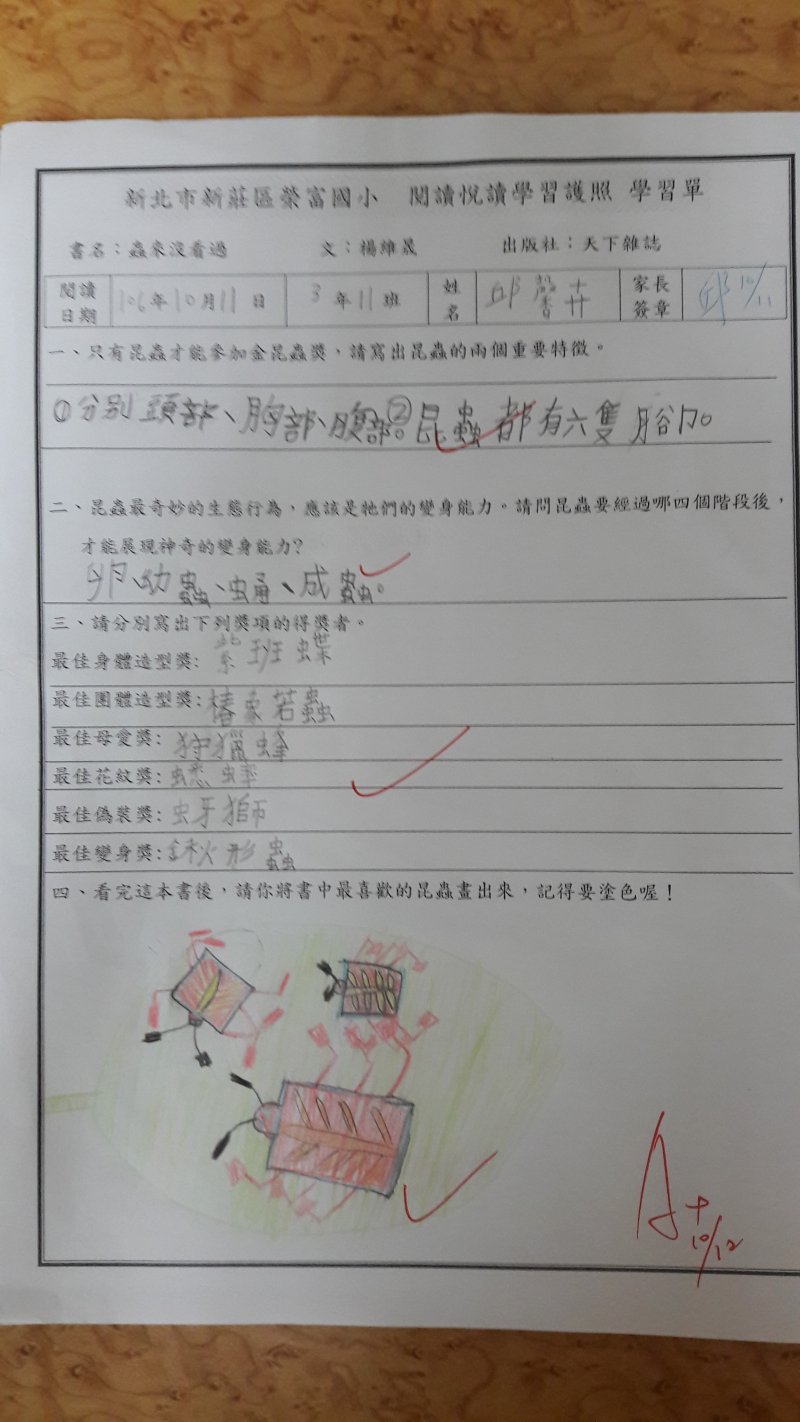 新北市新莊區榮富國小 閱讀悅讀學習護照 學習單
書名：蟲來沒看過 文：楊維晟 出版社：天下雜誌
閱讀日期 106年10月11日 3年11班 姓名 邱馨卉 家長簽章 邱 10/11
一、只有昆蟲才能參加金昆蟲獎，請寫出昆蟲的兩個重要特徵。
①分別頭部、胸部、腹部。②昆蟲都有六隻腳。
二、昆蟲最奇妙的生態行為，應該是牠們的變身能力。請問昆蟲要經過哪四個階段後，
才能展現神奇的變身能力?
卵、幼蟲、蛹、成蟲。
三、請分別寫出下列獎項的得獎者。
最佳身體造型獎: 紫班蝶
最佳團體造型獎: 椿象若蟲
最佳母愛獎: 狩獵蜂
最佳花紋獎: 蟋蟀
最佳偽裝獎: 蚜獅
最佳變身獎: 鍬形蟲
四、看完這本書後，請你將書中最喜歡的昆蟲畫出來，記得要塗色喔！
A+
10/12